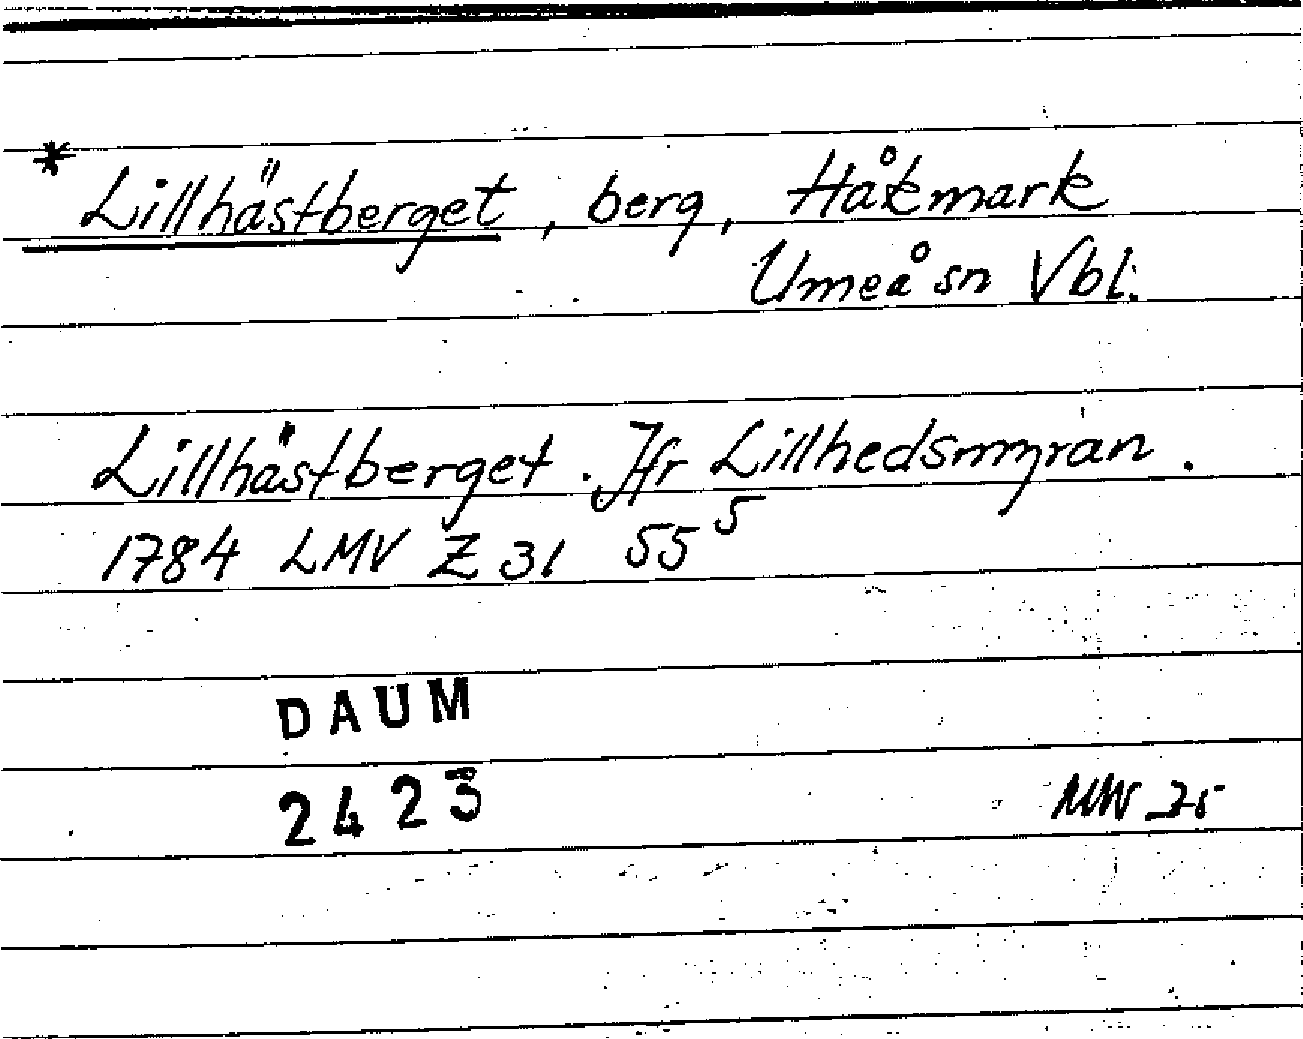 * Lillhästberget, berg, Håkmark
Umeå sn Vbl.
Lillhästberget. Jfr Lillhedsmyran.
1784 LMV Z 31 55⁵
DAUM
2423